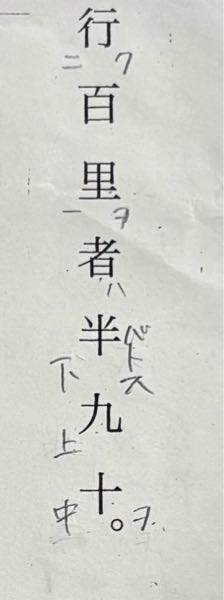 行ク二
百
里ヲ一
者ハ
半バトス下
九上
十ヲ中。